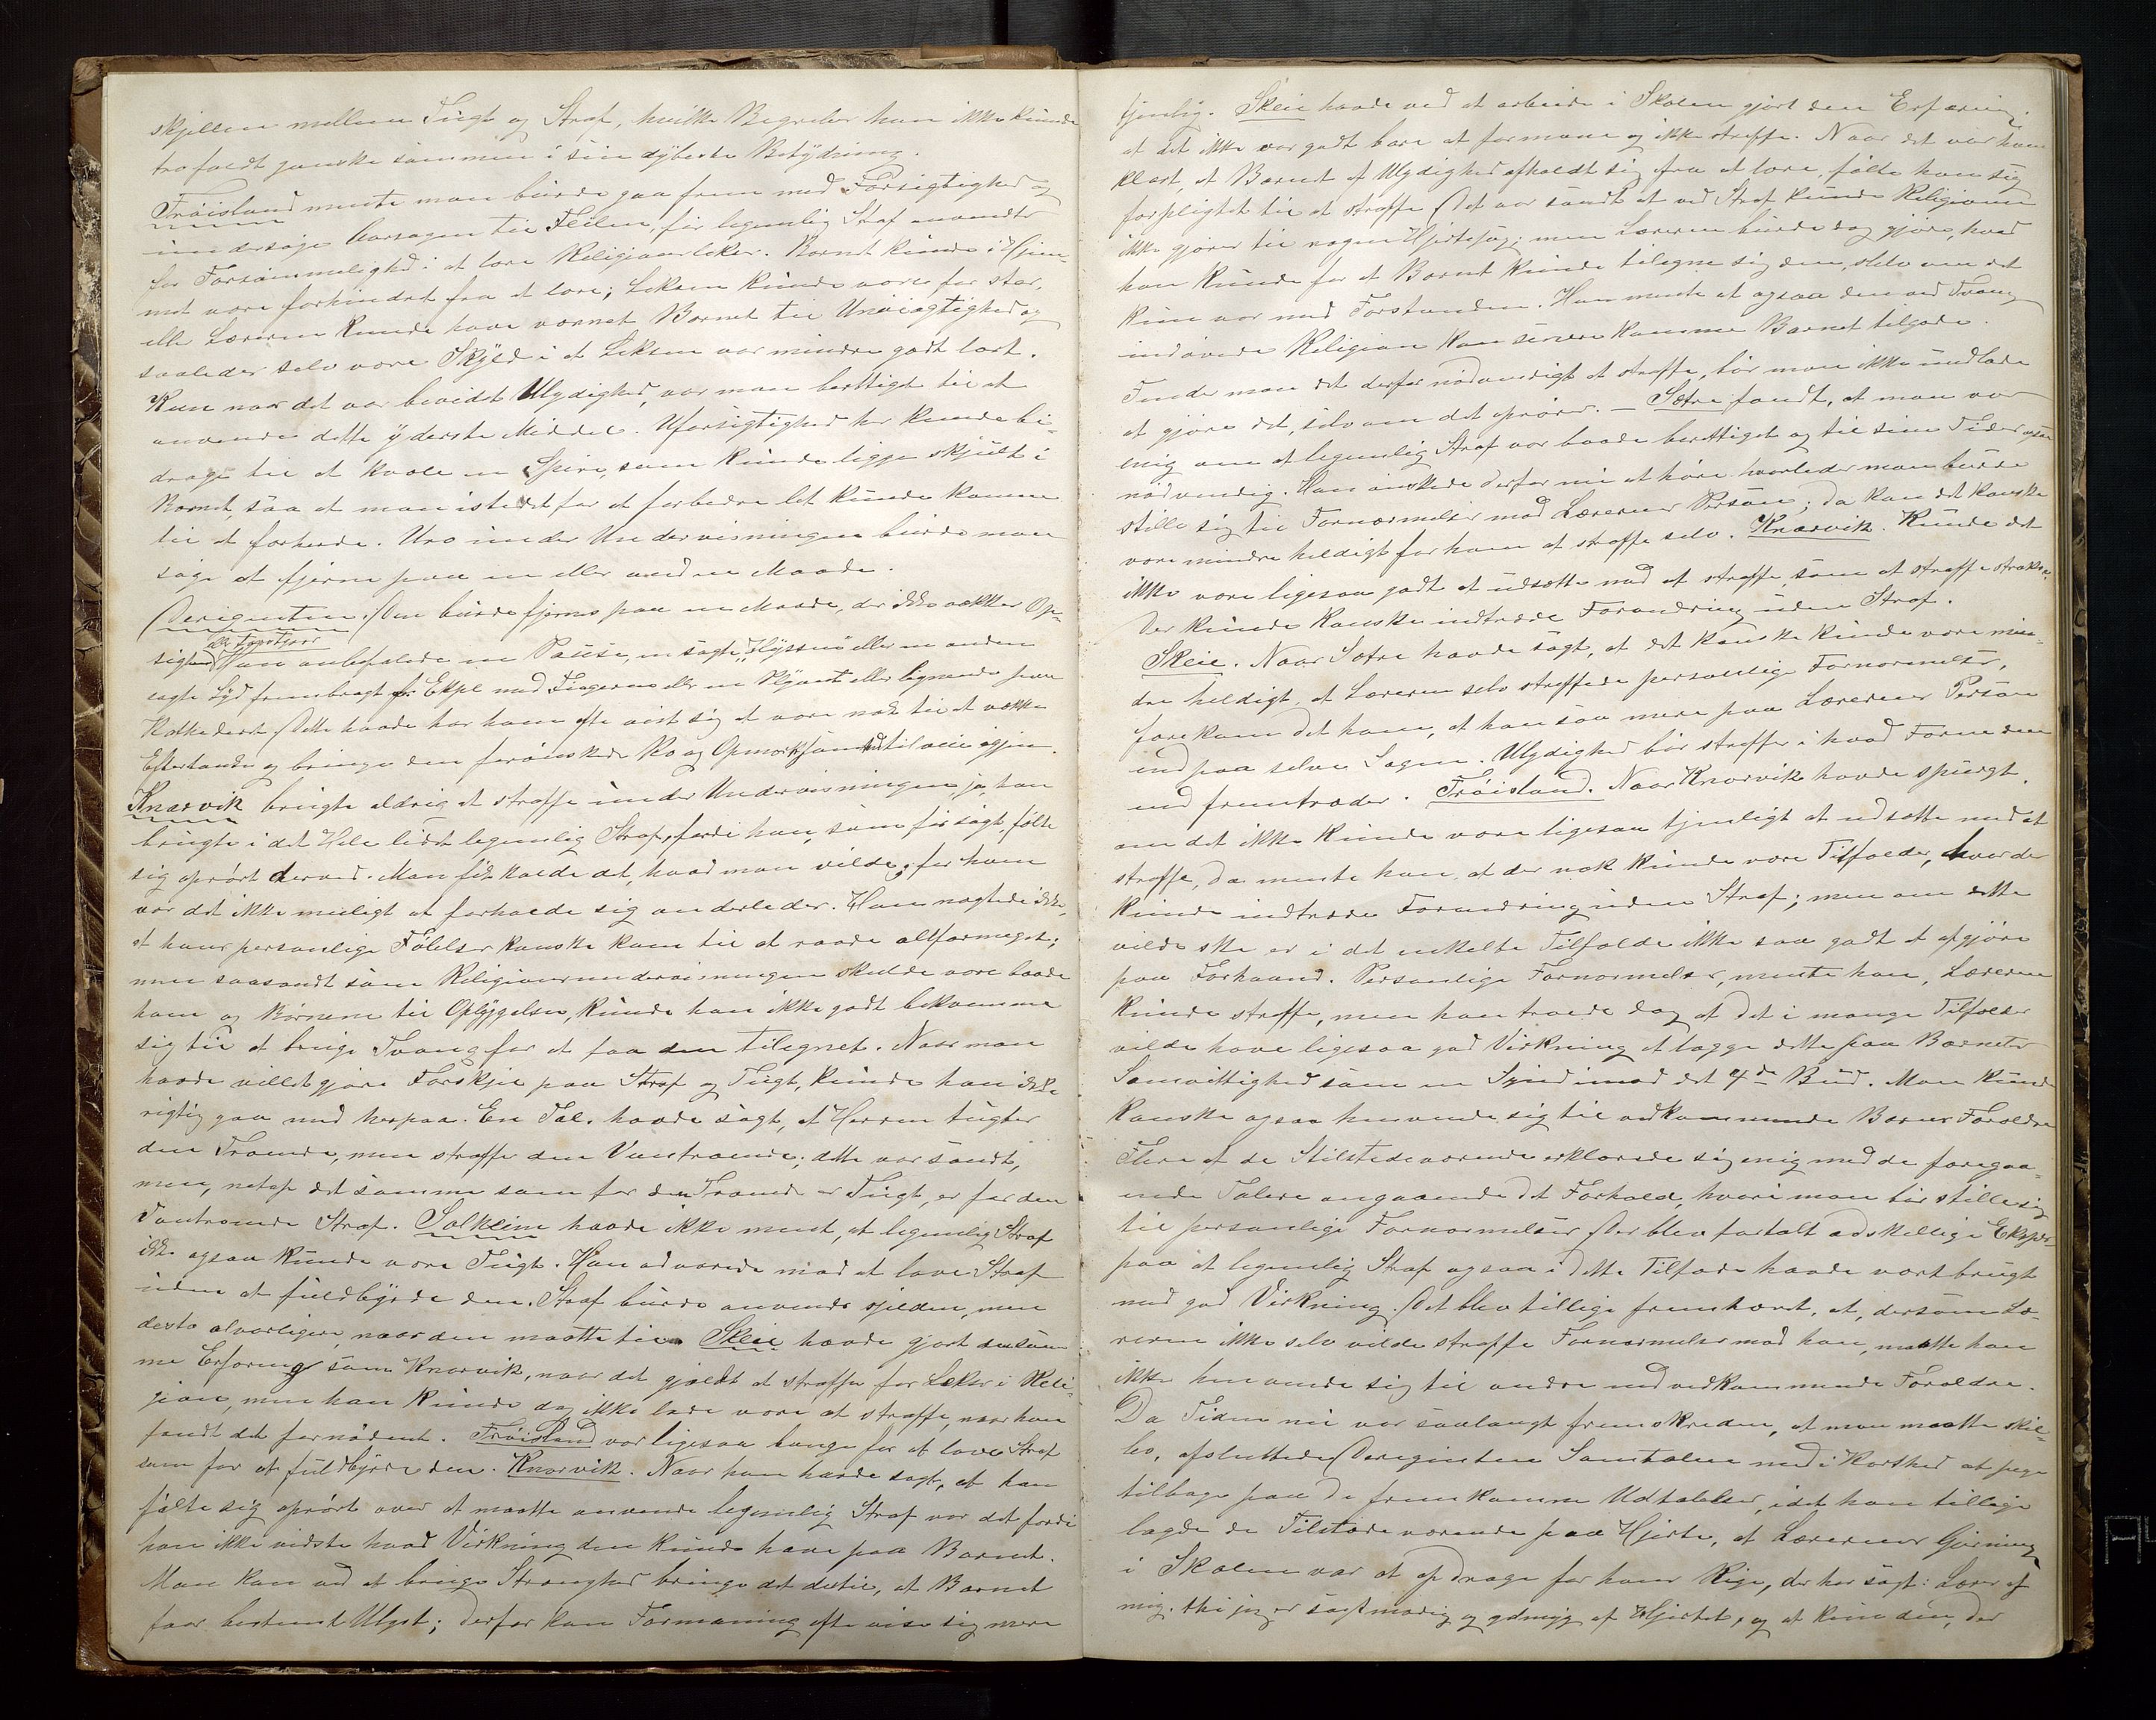 skjellen mellem Tugt og Straf, hvilke Begreber han ikke kunde
tro faldt ganske sammen i sin dybeste Betydning.
Frøisland mente man burde gaa frem med Forsigtighed og
undersøge Aarsagen til Feilen, før legemlig Straf anvendtes
for Forsømmelighed i at lære Religionslekser. Barnet kunde i Hjem-
met være forhindret fra at lære; Leksen kunde være for stor,
eller Læreren kunde have vænnet Barnet til Unøiagtighed og
saaledes selv være Skyld i at Leksen var mindre godt lært.
Kun naar det var bevidst Ulydighed, var man berettiget til at
anvende dette yderste Middel. Uforsigtighed her kunde bi-
drage til at kvæle en Spire, som kunde ligge skjult i
Barnet, saa at man istedetfor at forbedre let kunde komme
til at forherde. Uro under Undervisningen burde man
søge at fjerne paa en eller anden Maade.
Derigenten. Den burde fjernes paa en Maade, der ikke vækker Op-
sigt Han anbefalede en Pause, en sagte "Hyssen" eller en anden
sagte Lyd frembragt f. Ekspl. med Fingeren eller en Blyant eller lignende paa
Kathederet. Dette havde for ham ofte vist sig at være nok til at vække
Eftertanke og bringe den forønskede Ro og Opmerksomhed tilveie igjen.
Knarvik brugte aldrig at straffe under Undervisningen, ja, han
brugte i det Hele lidet legemlig Straf, fordi han, som før sagt, følte
sig oprørt derved. Man fik kalde det, hvad man vilde; for ham
var det ikke muligt at forholde sig anderledes. Han nægtede ikke,
at hans personlige Følelser kanske kom til at raade altformeget;
men saasandt som Religionsundervisningen skulde være baade
ham og Børnene til Opbyggelse, kunde han ikke godt bekvemme
sig til at bruge Tvang for at faa den tilegnet. Naar man
havde villet gjøre Forskjel paa Straf og Tugt, kunde han ikke
rigtig gaa med herpaa. En Tal. havde sagt, at Herren tugter
den Troende, men straffer den Vantroende; dette var sandt,
men, netop det samme som for den Troende er Tugt, er for den
Vantroende Straf. Solheim havde ikke ment, at legemlig Straf
ikke ogsaa kunde være Tugt. Han advarede mod at love Straf
uden at fuldbyrde den. Straf burde anvendes sjelden, men
desto alvorligere, naar den maatte til. Skeie havde gjort den sam-
me Erfaring som Knarvik, naar det gjældt at straffe for Lekser i Reli-
gion, men han kunde dog ikke lade være at straffe, naar han
fandt det fornødent. Frøisland var ligesaa bange for at love Straf
som for at fuldbyrde den. Knarvik. Naar han havde sagt, at han
følte sig oprørt over at maatte anvende legemlig Straf var det fordi
han ikke vidste hvad Virkning den kunde have paa Barnet.
Man kan ved at bruge Strenghed bringe det dertil, at Barnet
faar bestemt Ulyst; derfor kan Formaning ofte vise sig mere
tjenlig. Skeie havde ved at arbeide i Skolen gjort den Erfaring,
at det ikke var godt bare at formane og ikke straffe. Naar det var ham
klart, at Barnet af Ulydighed afholdt sig fra at lære, følte han sig
forpligtet til at straffe. Det var sandt at ved Straf kunde Religionen
ikke gjøres til nogen Hjertesag; men Læreren burde dog gjøre, hvad
han kunde for at Barnet kunde tilegne sig den, selv om det
kun var med Forstanden. Han mente at ogsaa den ved Tvang
indøvede Religion kan senere komme Barnet tilgode.
Finder man det derfor nødvendigt at straffe, bør man ikke undlade
at gjøre det, selv om det oprører. – Sætre fandt, at man var
enig om at legemlig Straf var baade berettiget og til sine Tider ogsaa
nødvendig. Han ønskede derfor nu at høre hvorledes man burde
stille sig til Fornærmelser mod Lærerens Person; da kan det kanske
være mindre heldigt for ham at straffe selv. Knarvik. Kunde det
ikke være ligesaa godt at udsætte med at straffe som at straffe straks.
Der kunde kanske indtræde Forandring uden Straf.
Skeie. Naar Sætre havde sagt, at det kanske kunde være min-
dre heldigt, at Læreren selv straffede personlige Fornærmelser,
forekom det ham, at han saa mere paa Lærerens Person
end paa selve Sagen. Ulydighed bør straffes i hvad Form den
end fremtræder. Frøisland. Naar Knarvik havde spurgt,
om det ikke kunde være ligesaa tjenligt at udsætte med at
straffe, da mente han, at der nok kunde være Tilfælder, hvor der
kunde indtræde Forandring uden Straf; men om dette
vilde ske er i det enkelte Tilfælde ikke saa godt at afgjøre
paa Forhaand. Personlige Fornærmelser, mente han, Læreren
kunde straffe, men han troede dog at det i mange Tilfælder
vilde have ligesaa god Virkning at lægge dette paa Barnets
Samvittighed som en Synd imod det 4de Bud. Man kunde
kanske ogsaa henvende sig til vedkommende Barns Forældre
Flere af de Tilstedeværende erklærede sig enig med de foregaa-
ende Talere angaaende det Forhold, hvori man bør stille sig
til personlige Fornærmelser. Der blev fortalt adskellige Eksper
paa at legemlig Straf ogsaa i dette Tilfælde havde vært brugt
med god Virkning. Det blev tillige fremhævet, at, dersom Læ-
reren ikke selv vilde straffe Fornærmelser mod ham, maatte han
ikke henvende sig til andre end vedkommende Forældre.
Da Tiden nu var saalangt fremskreden, at man maatte skil-
les, afsluttede Derigenten Samtalen med i Korthed at pege
tilbage paa de fremkomne Udtalelser, idet han tillige
lagde de Tilstedeværende paa Hjerte, at Lærerens Gjerning
i Skolen var at opdrage for hans Rige, der har sagt: Lærer af
mig, thi jeg er sagtmodig og ydmyg af Hjertet, og at kun den, der